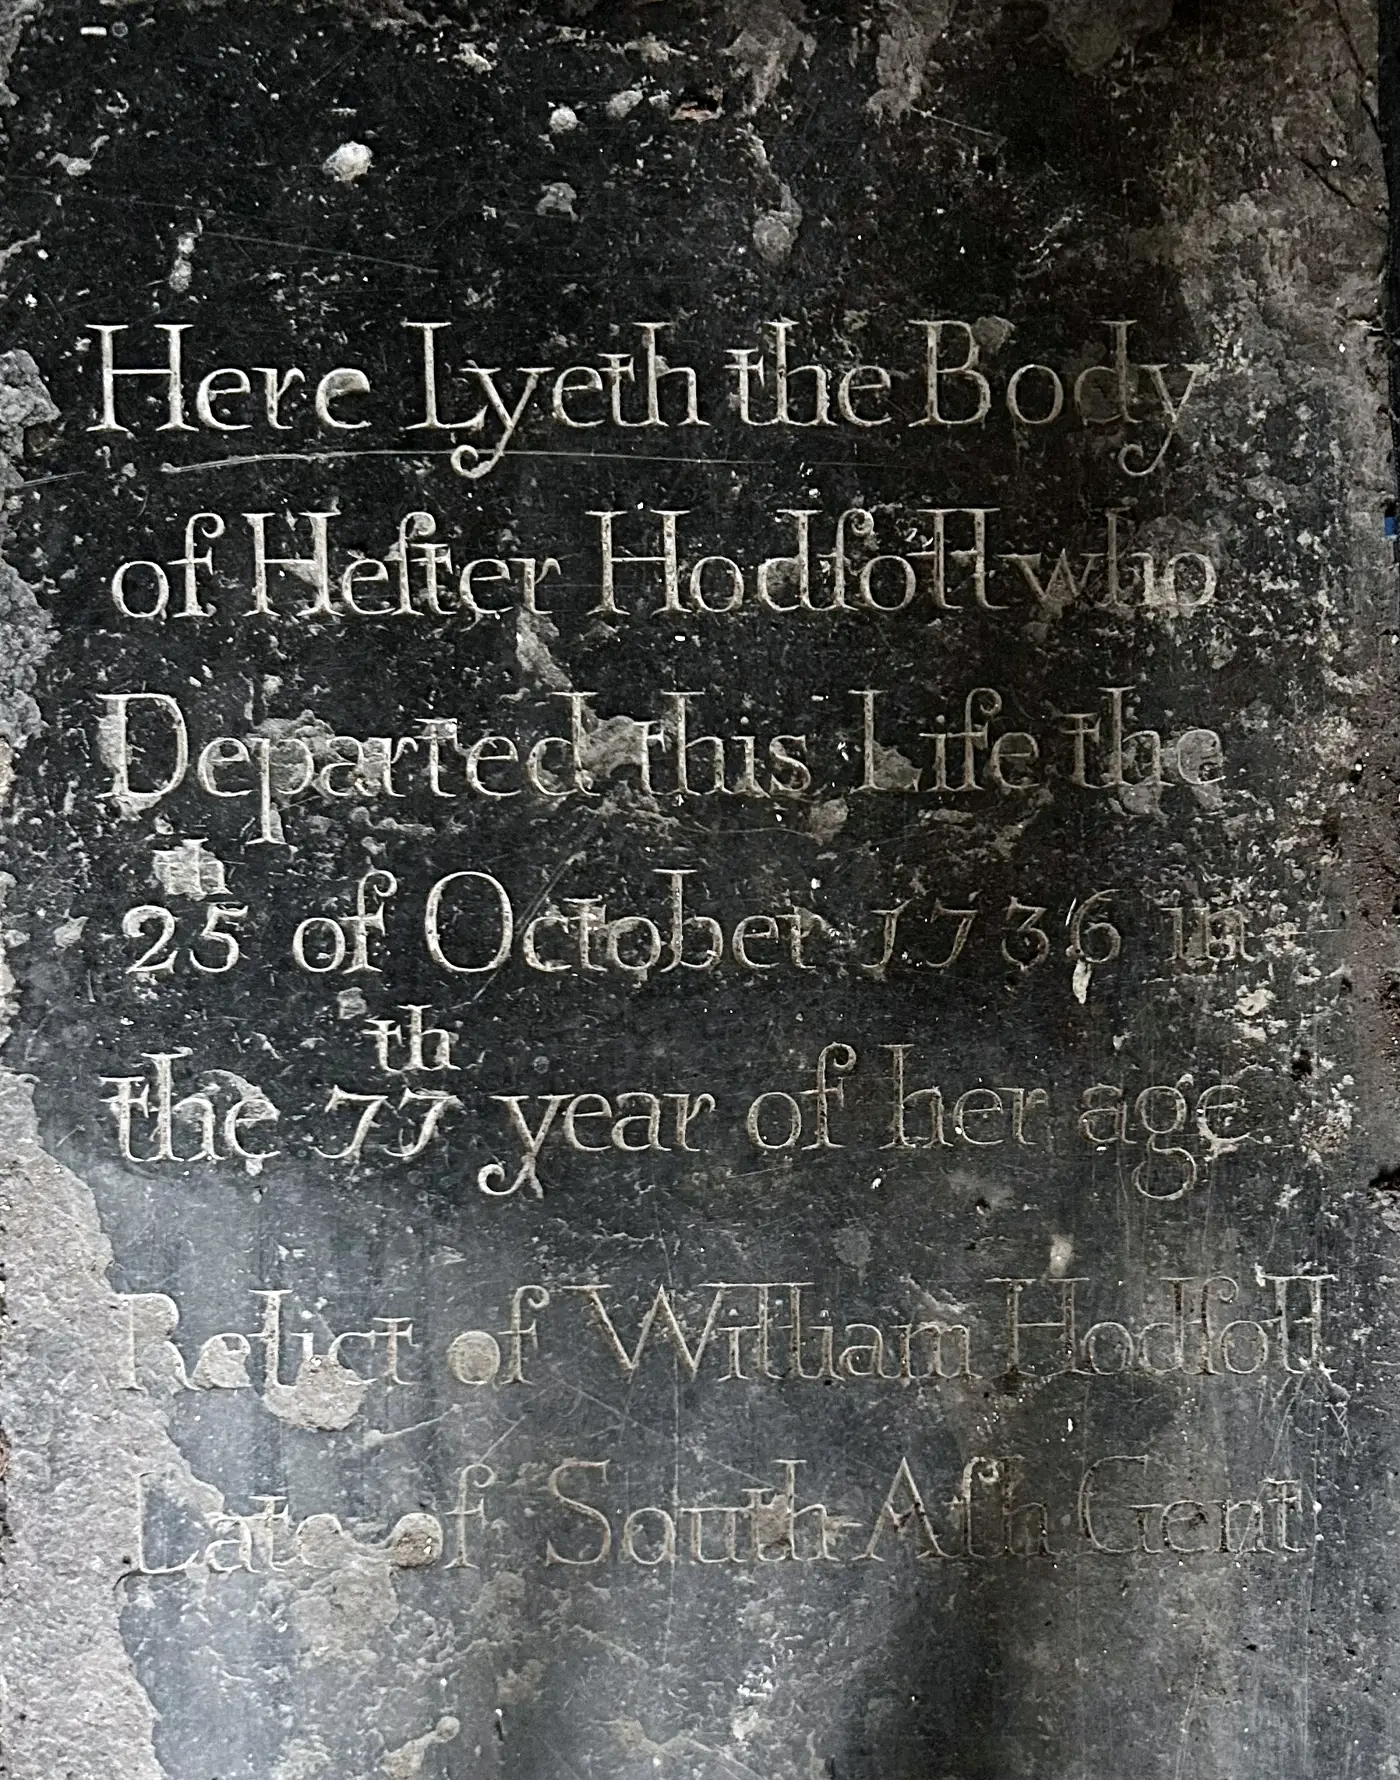 Here Lyeth the Body
of Heſter Hodſoll who
Departed this Life the
25th of October 1736 in
the 77th year of her age
Relict of William Hodſoll
Late of South Aſh Gent